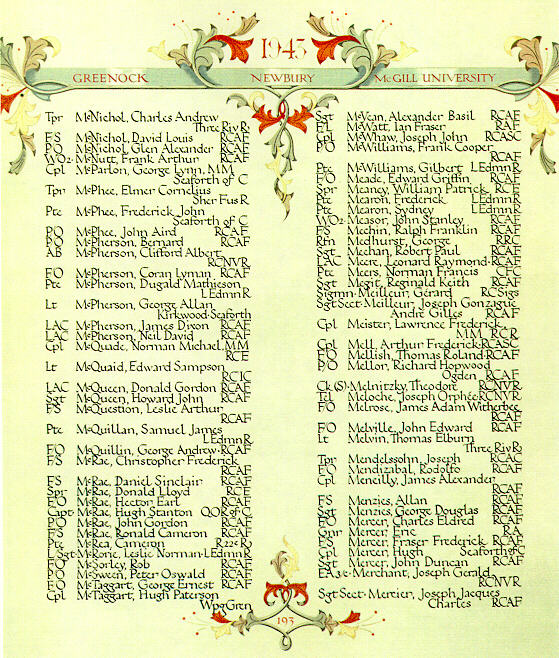 1943
GREENOCK NEWBURY McGILL UNIVERSITY
Tpr McNichol, Charles Andrew
Three Riv R
FS McNichol, David Louis RCAF
PO McNichol, Glen Alexander RCAF
WO2 McNutt, Frank Arthur RCAF
Cpl McParlon, George Lynn, MM
Seaforth of C
Tpr McPhee, Elmer Cornelius
Sher Fus R
Pte McPhee, Frederick John
Seaforth of C
PO McPhee, John Aird RCAF
PO McPherson, Bernard RCAF
AB McPherson, Clifford Albert
RCNVR
FO McPherson, Coran Lyman RCAF
Pte McPherson, Dugald Mathieson
LEdmn R
Lt McPherson, George Allan
Kirkwood Seaforth
LAC McPherson, James Dixon RCAF
LAC McPherson, Neil David RCAF
Cpl McQuade, Norman Michael, MM
RCE
Lt McQuaid, Edward Sampson
RCIC
LAC McQueen, Donald Gordon RCAF
Sgt McQueen, Howard John RCAF
FS McQuestion, Leslie Arthur
RCAF
Pte McQuillan, Samuel James
LEdmn R
FO McQuillin, George Andrew RCAF
FS McRae, Christopher Frederick
RCAF
FS McRae, Daniel Sinclair RCAF
Spr McRae, Donald Lloyd RCE
FO McRae, Hector Earl RCAF
Capt McRae, Hugh Stanton QOR of C
PO McRae, John Gordon RCAF
FS McRae, Ronald Cameron RCAF
Pte McRea, Cameron R22eR
L Sgt McRorie, Leslie Norman LEdmn R
FO McSorley, Rob RCAF
PO McSween, Peter Oswald RCAF
FO McTaggart, George Ernest RCAF
Cpl McTaggart, Hugh Paterson
Wpg Gren
Sgt McVean, Alexander Basil RCAF
FL McWatt, Ian Fraser RAF
Cpl McWhaw, Joseph John RCASC
PO McWilliams, Frank Cooper
RCAF
Pte McWilliams, Gilbert LEdmn R
FO Meade, Edward Griffin RCAF
Spr Meaney, William Patrick RCE
Pte Mearon, Frederick LEdmn R
Pte Mearon, Sydney LEdmn R
WO2 Measor, John Stanley RCAF
FS Mechin, Ralph Franklin RCAF
Rfn Medhurst, George RRC
Sgt Meehan, Robert Paul RCAF
LAC Meere, Leonard Raymond RCAF
Pte Meers, Norman Francis CFC
Sgt Megit, Reginald Keith RCAF
Sigmn Meilleur, Gérard RC Sigs
Sgt Sect Meilleur, Joseph Gonzague
André Gilles RCAF
Cpl Meister, Lawrence Frederick,
MM RCR
Cpl Mell, Arthur Frederick RCASC
FO Mellish, Thomas Roland RCAF
PO Mellor, Richard Hopwood
Ogden RCAF
Ck (S) Melnitzky, Theodore RCNVR
Tel Meloche, Joseph Orphée RCNVR
FO Melrose, James Adam Witherbee
RCAF
FO Melville, John Edward RCAF
Lt Melvin, Thomas Elburn
Three Riv R
Tpr Mendelssohn, Joseph RCAC
FO Mendizabal, Rodolfo RCAF
Cpl Meneilly, James Alexander
RCAF
FS Menzies, Allan RCAF
Sgt Menzies, George Douglas RCAF
FO Mercer, Charles Eldred RCAF
Gnr Mercer, Eric RA
FS Mercer, Fraser Frederick RCAF
Cpl Mercer, Hugh Seaforth of C
Sgt Mercer, John Duncan RCAF
EA3c Merchant, Joseph Gerald
RCNVR
Sgt Sect Mercier, Joseph Jacques
Charles RCAF
193